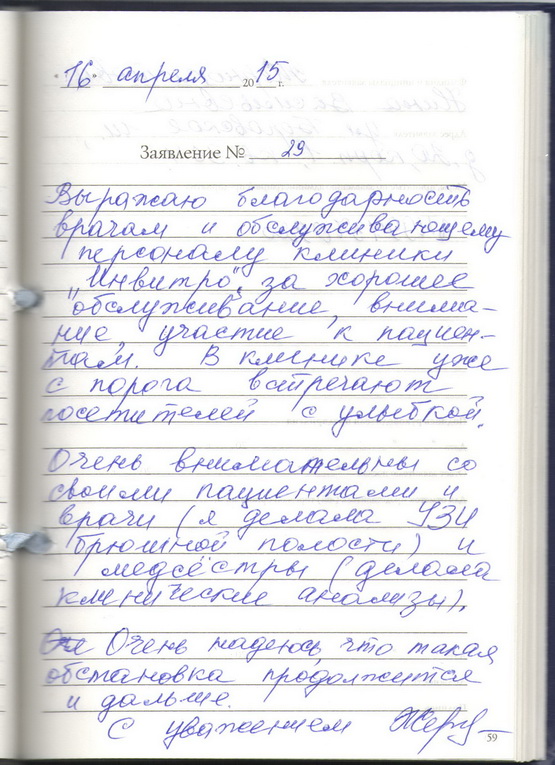 16 апреля 2015 г.
Заявление № 29
Выражаю благодарность
врачам и обслуживающему
персоналу клиники
„Инвитро", за хорошее
обслуживание, внима-
ние, участие к пациен-
там. В клинике уже
с порога встречают
посетителей с улыбкой.
Очень внимательны со
своими пациентами и
врачи (я делала УЗИ
брюшной полости) и
медсёстры (делала
клинические анализы).
Очень надеюсь, что такая
обстановка продолжится
и дальше.
С уважением
59